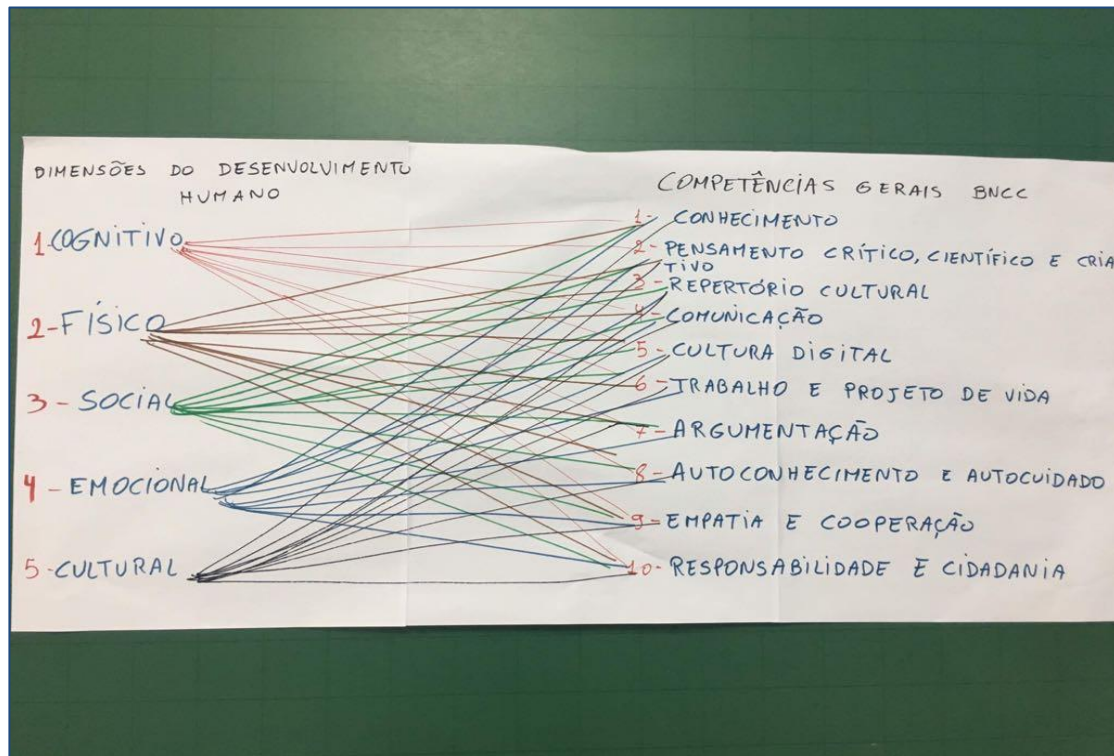 DIMENSÕES DO DESENVOLVIMENTO
HUMANO
1-COGNITIVO
2-FÍSICO
3-SOCIAL
4-EMOCIONAL
5-CULTURAL
COMPETÊNCIAS GERAIS BNCC
1- CONHECIMENTO
2- PENSAMENTO CRÍTICO, CIENTÍFICO E CRIA
TIVO
3- REPERTÓRIO CULTURAL
4- COMUNICAÇÃO
5- CULTURA DIGITAL
6- TRABALHO E PROJETO DE VIDA
7- ARGUMENTAÇÃO
8- AUTOCONHECIMENTO E AUTOCUIDADO
9- EMPATIA E COOPERAÇÃO
10- RESPONSABILIDADE E CIDADANIA